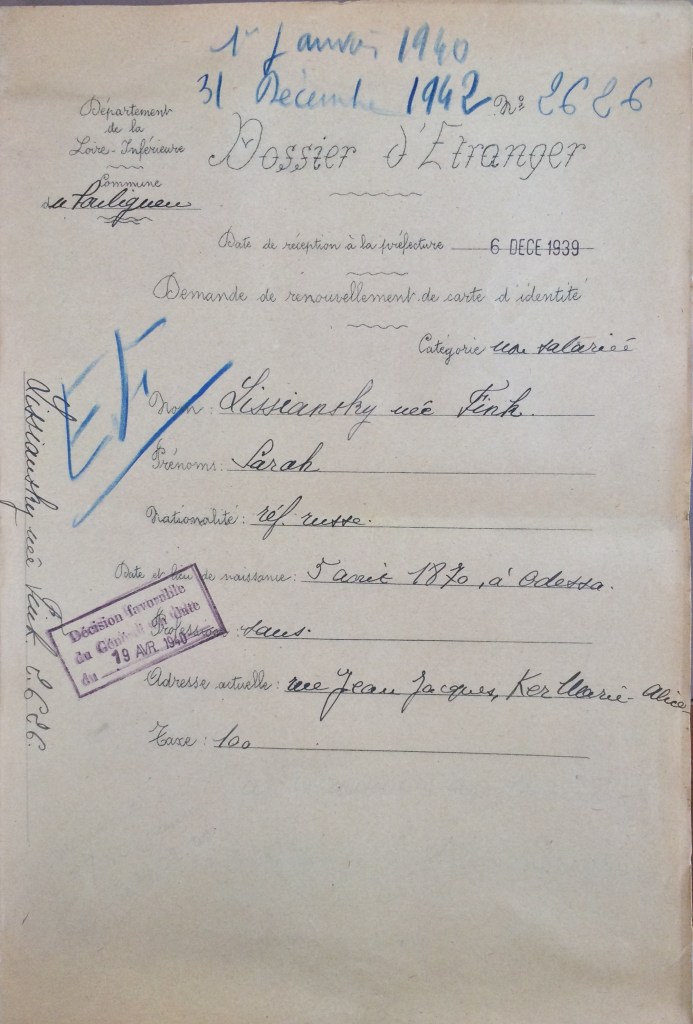 1er Janvier 1940
31 Décembre 1942
N° 2626
Département
de la
Loire-Inférieure
Dossier d'Etranger
Commune
du Pouliguen
Date de réception à la préfecture 6 DECE 1939
Demande de renouvellement de carte d'identité
Catégorie non salariée
Nom: Lissiansky née Fink.
Prénoms: Sarah
Nationalité: réf. russe.
Date et lieu de naissance: 5 avril 1870, à Odessa.
Profession: sans.
Adresse actuelle: rue Jean Jacques, Ker Marie-Alice
Taxe: 100
Décision favorable
du Général
du 19 AVR. 1940
Lissiansky née Fink. 2626.